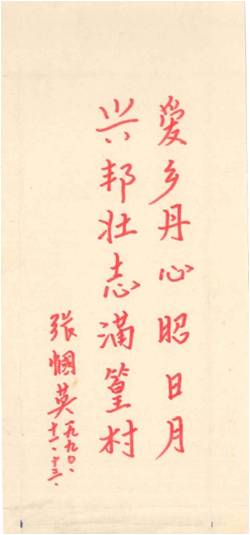 爱乡丹心昭日月
兴邦壮志满篁村
张帼英
一九九〇、
十二、十三、